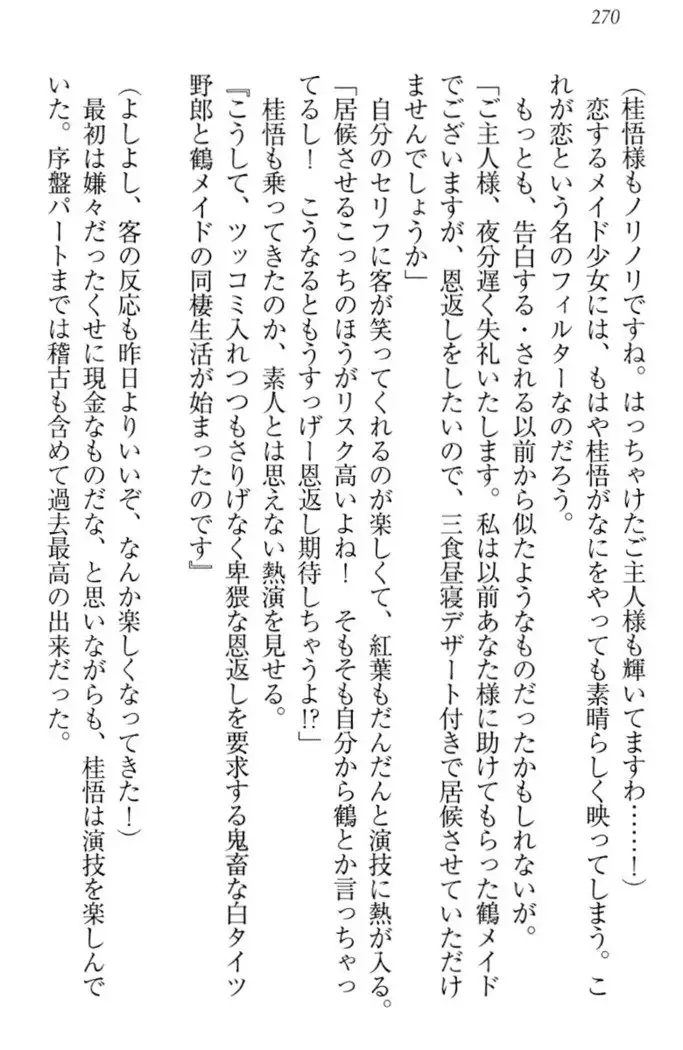 270
(桂悟様もノリノリですね。はっちゃけたご主人様も輝いてますわ……！)
　恋するメイド少女には、もはや桂悟がなにをやっても素晴らしく映ってしまう。こ
れが恋という名のフィルターなのだろう。
　もっとも、告白する・される以前から似たようなものだったかもしれないが。
「ご主人様、夜分遅く失礼いたします。私は以前あなた様に助けてもらった鶴メイド
でございますが、恩返しをしたいので、三食昼寝デザート付きで居候させていただけ
ませんでしょうか」
　自分のセリフに客が笑ってくれるのが楽しくて、紅葉もだんだんと演技に熱が入る。
「居候させるこっちのほうがリスク高いよね！　そもそも自分から鶴とか言っちゃっ
てるし！　こうなるともうすっげー恩返し期待しちゃうよ!?」
　桂悟も乗ってきたのか、素人とは思えない熱演を見せる。
『こうして、ツッコミ入れつつもさりげなく卑猥な恩返しを要求する鬼畜な白タイツ
野郎と鶴メイドの同棲生活が始まったのです』
(よしよし、客の反応も昨日よりいいぞ、なんか楽しくなってきた！)
　最初は嫌々だったくせに現金なものだな、と思いながらも、桂悟は演技を楽しんで
いた。序盤パートまでは稽古も含めて過去最高の出来だった。